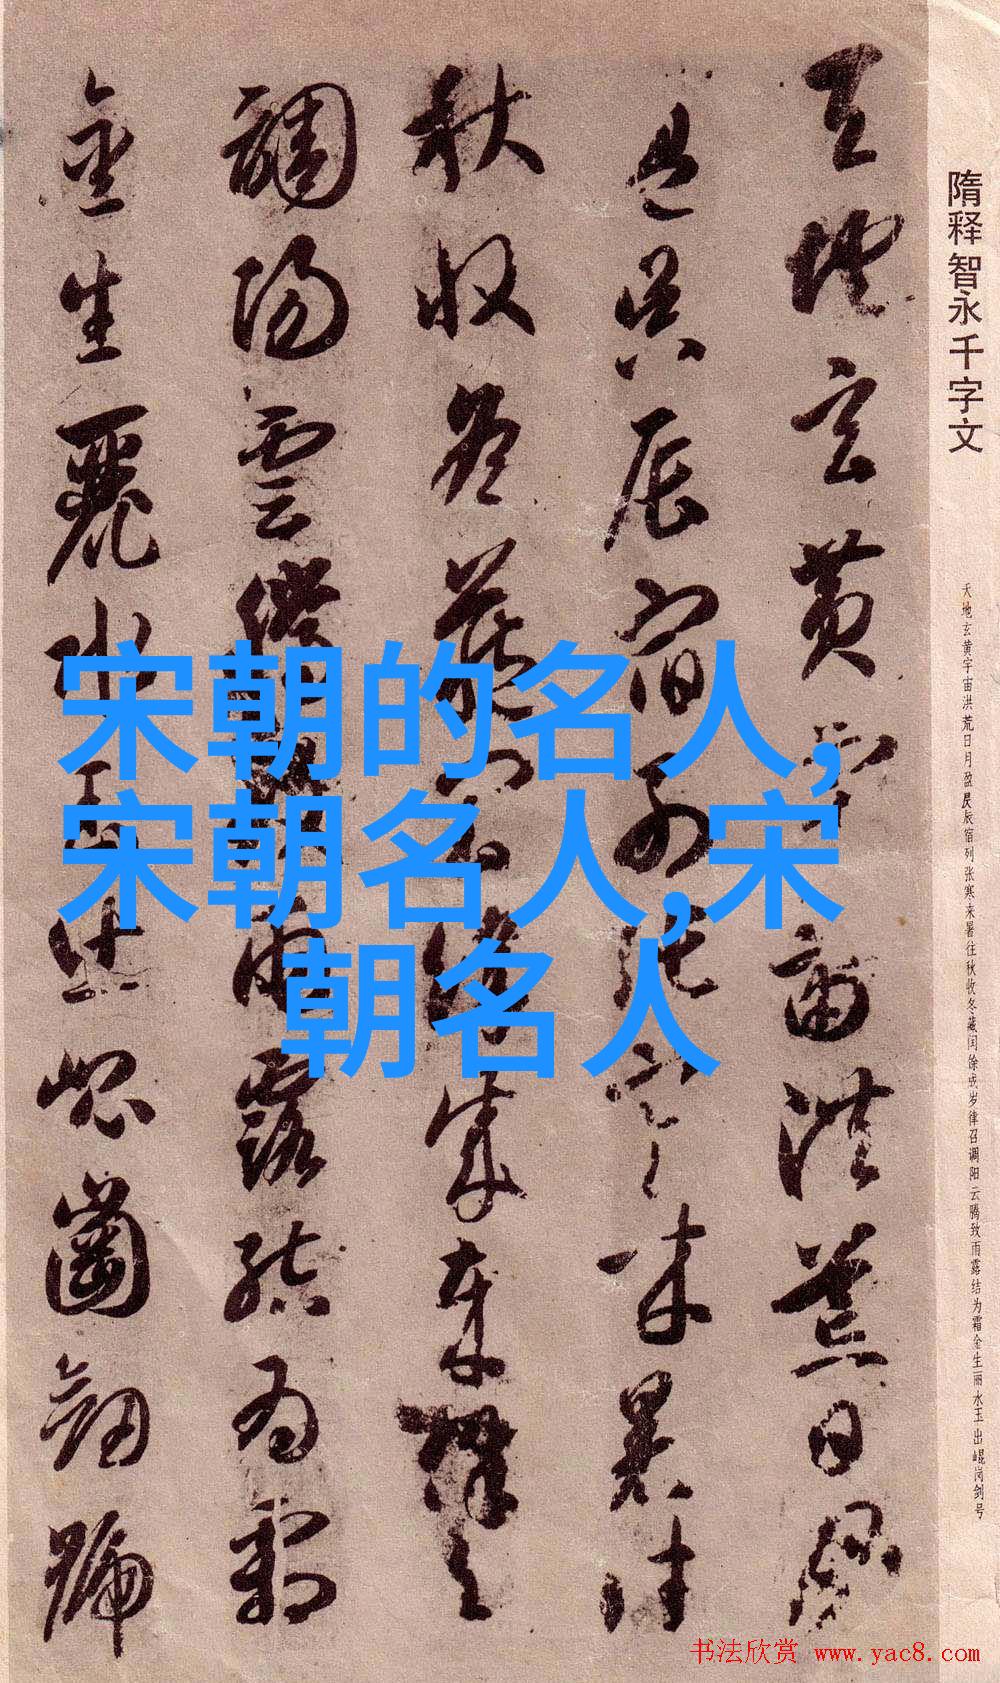 隋释智永千字文
天地玄黄宇宙洪荒日月盈昃辰宿列张寒来暑往秋收冬藏闰馀成岁律召调阳云腾致雨露结为霜金生丽水玉出崐岗剑号
天地玄黄宇宙洪荒日月
盈昃辰宿列張寒来暑往
秋收冬蔵閏餘成歳律召
調陽雲騰致雨露結為霜
金生麗水玉出崐崗劒號
宋朝的名人,
宋朝名人,宋
朝名人
书法欣赏 www.yac8.com